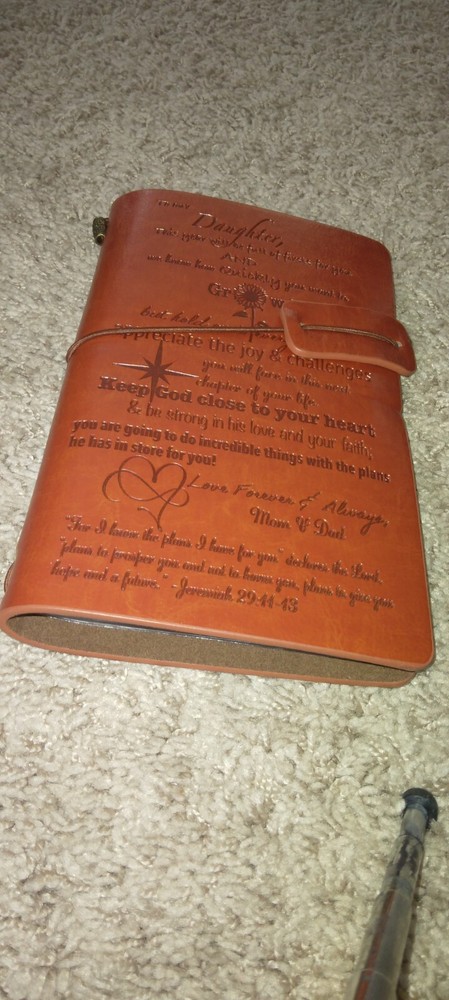 TO MY
Daughter,
This year will be full of firsts for you
And
we know how Quickly you want to
Gr w
best hold on &
appreciate the joy & challenges
you will face in this next
chapter of your life.
Keep God close to your heart
& be strong in his love and your faith,
you are going to do incredible things with the plans
he has in store for you!
Love Forever & Always,
Mom & Dad
"For I know the plans I have for you" declares the Lord,
"plans to prosper you and not to harm you, plans to give you
hope and a future." -Jeremiah 29:11-13